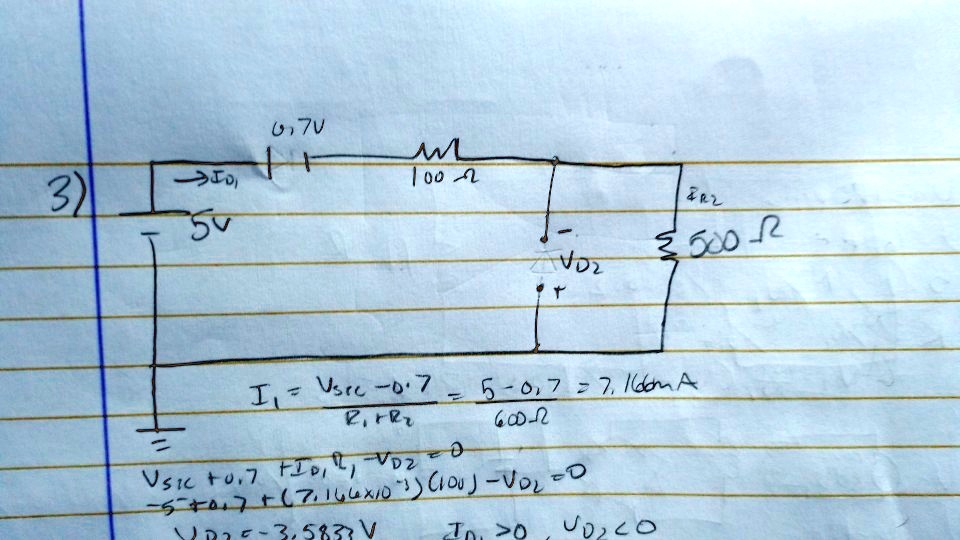 0.7V
3)
→I_D1
100 Ω
I_R2
5V
-
500 Ω
V_D2
+
I_1 = (V_src - 0.7)/(R_1 + R_2) = (5 - 0.7)/(600 Ω) = 7.166mA
V_src + 0.7 + I_D1 R_1 - V_D2 = 0
-5 + 0.7 + (7.166x10^-3)(100) - V_D2 = 0
V_D2 = -3.5833 V I_D1 > 0, V_D2 < 0